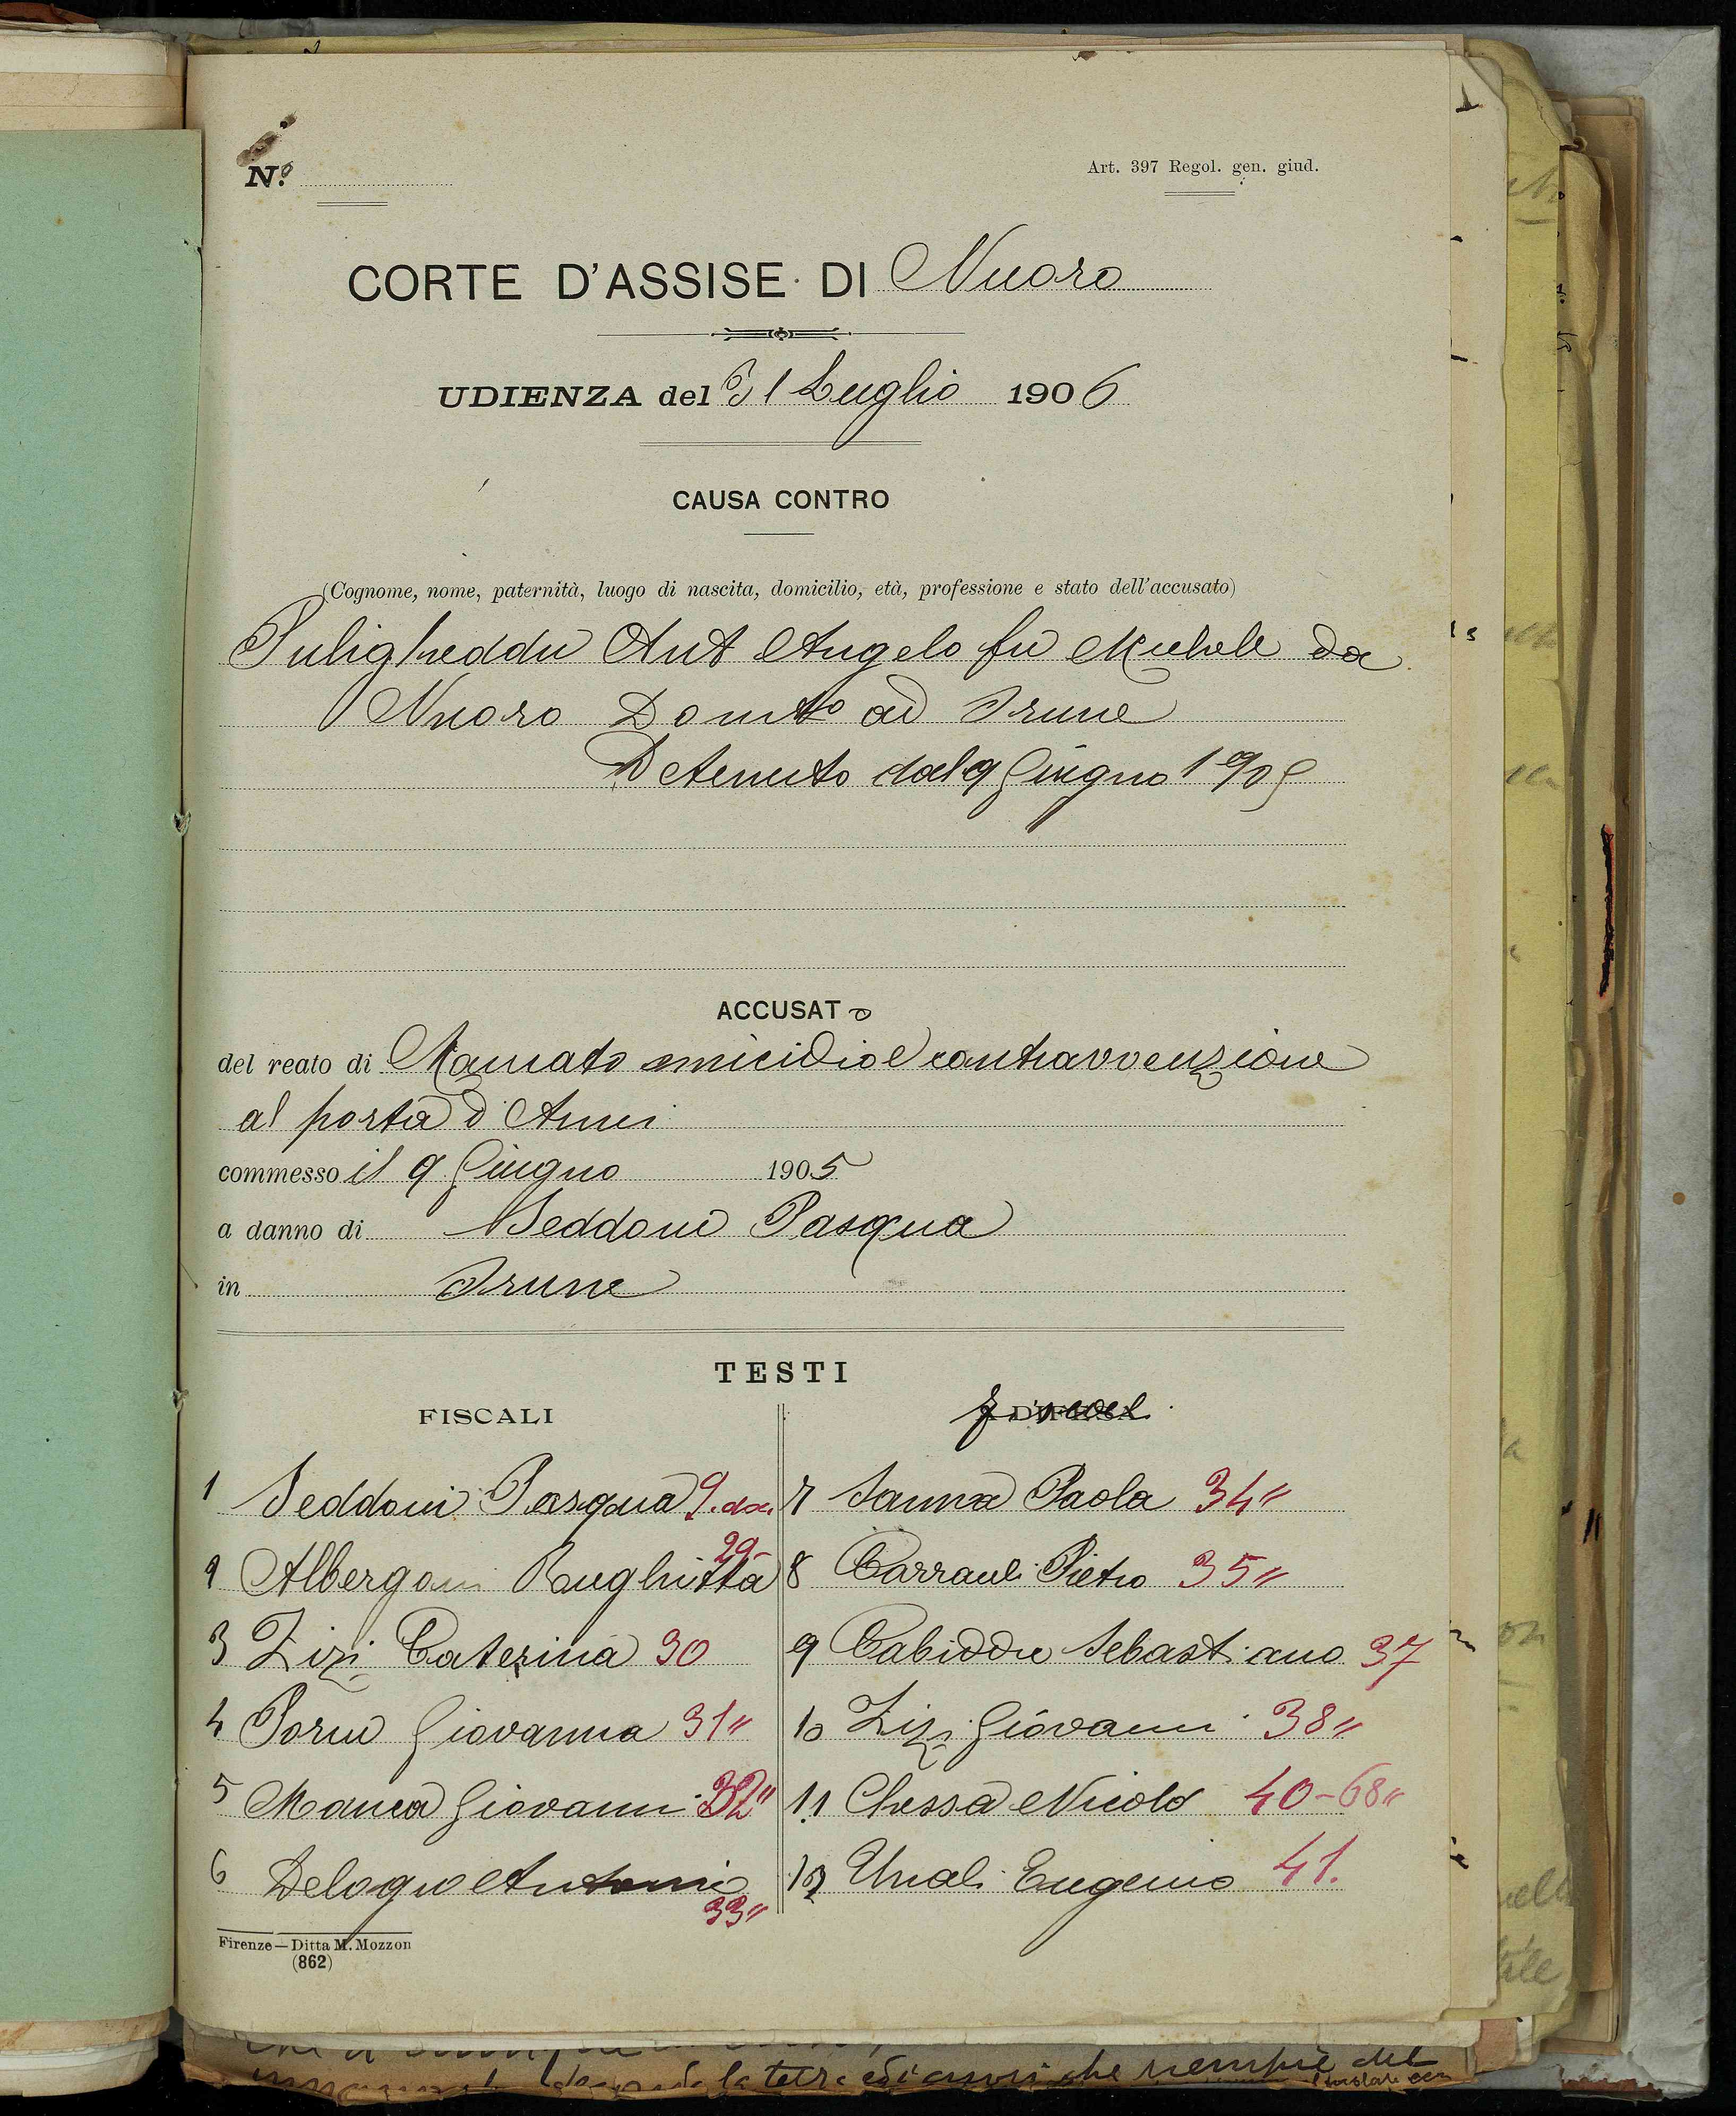 N.º
Art. 397 Regol. gen. giud.
CORTE D'ASSISE DI Nuoro
UDIENZA del 31 Luglio 1906
CAUSA CONTRO
(Cognome, nome, paternità, luogo di nascita, domicilio, età, professione e stato dell'accusato)
Puligheddu Ant Angelo fu Michele da
Nuoro Domto ad Orune
Detenuto dal 9 Giugno 1905
ACCUSATO
del reato di Mancato omicidio e contravvenzione
al porto d'Armi
commesso il 9 Giugno 1905
a danno di Seddoni Pasqua
in Orune
TESTI
FISCALI
1 Seddoni Pasqua 9.
2 Albergoni Rughitta 29
3 Zizi Caterina 30
4 Porcu Giovanna 31"
5 Manca Giovanni 32"
6 Delogu Antonio 33"
DIFESA
7 Sanna Paola 34"
8 Pietro 35"
9 Cabiddu Sebastiano 37
10 Zizi Giovanni 38"
11 Chessa Nicolò 40-68"
12 Unali Eugenio 41.
Firenze — Ditta M. Mozzon
(862)